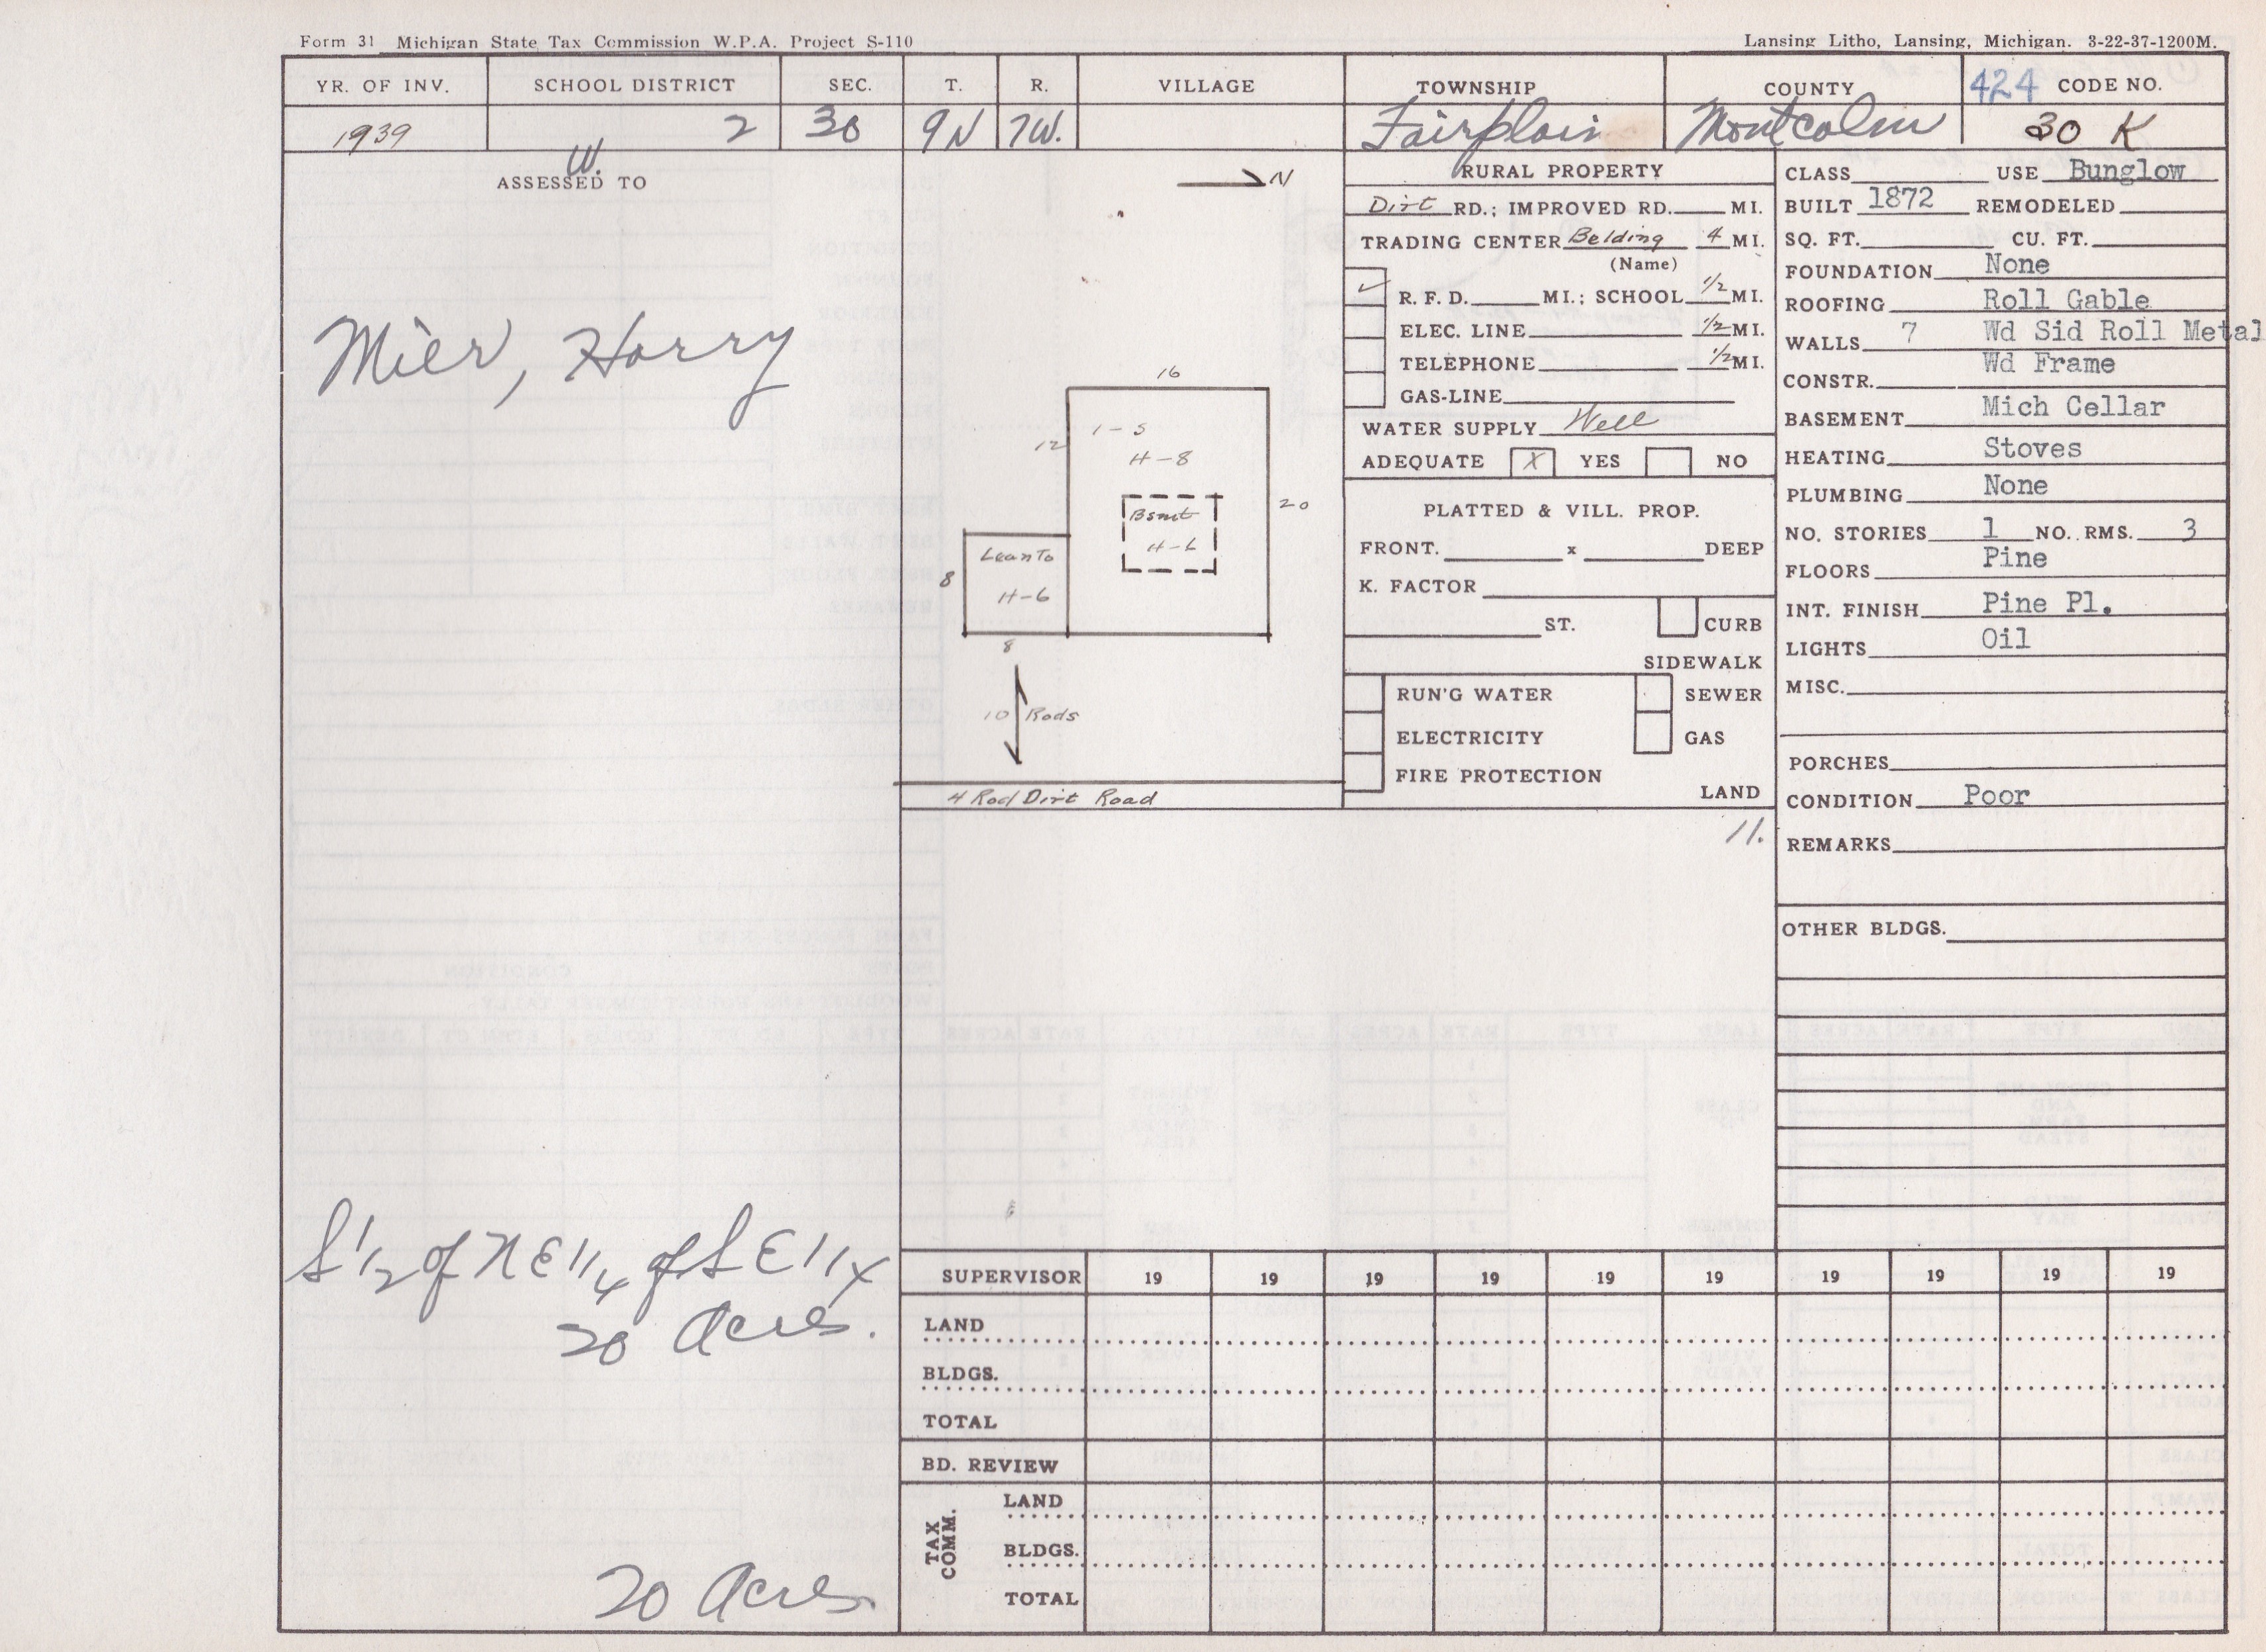 Form 31 Michigan State Tax Commission W.P.A. Project S-110
Lansing Litho, Lansing, Michigan. 3-22-37-1200M.
YR. OF INV. SCHOOL DISTRICT SEC. T. R. VILLAGE TOWNSHIP COUNTY 424 CODE NO.
1939 2 30 9N 7W. Fairplain Montcalm 30 K
W.
ASSESSED TO
Mier, Harry
S 1/2 of NE 1/4 of SE 1/4
20 Acres.
20 Acres
N
16
12
1-S
H-8
20
Bsmt
H-6
Lean To
8
H-6
8
10 Rods
4 Rod Dirt Road
RURAL PROPERTY
Dirt RD.; IMPROVED RD. MI.
TRADING CENTER Belding 4 MI.
(Name)
✓ R. F. D. MI.; SCHOOL 1/2 MI.
ELEC. LINE 1/2 MI.
TELEPHONE 1/2 MI.
GAS-LINE
WATER SUPPLY Well
ADEQUATE X YES NO
PLATTED & VILL. PROP.
FRONT. x DEEP
K. FACTOR
ST. CURB
SIDEWALK
RUN'G WATER SEWER
ELECTRICITY GAS
FIRE PROTECTION
LAND
11.
CLASS USE Bunglow
BUILT 1872 REMODELED
SQ. FT. CU. FT.
FOUNDATION None
ROOFING Roll Gable
WALLS 7 Wd Sid Roll Metal
CONSTR. Wd Frame
BASEMENT Mich Cellar
HEATING Stoves
PLUMBING None
NO. STORIES 1 NO. RMS. 3
FLOORS Pine
INT. FINISH Pine Pl.
LIGHTS Oil
MISC.
PORCHES
CONDITION Poor
REMARKS
OTHER BLDGS.
SUPERVISOR 19 19 19 19 19 19 19 19 19 19
LAND
BLDGS.
TOTAL
BD. REVIEW
TAX COMM.
LAND
BLDGS.
TOTAL